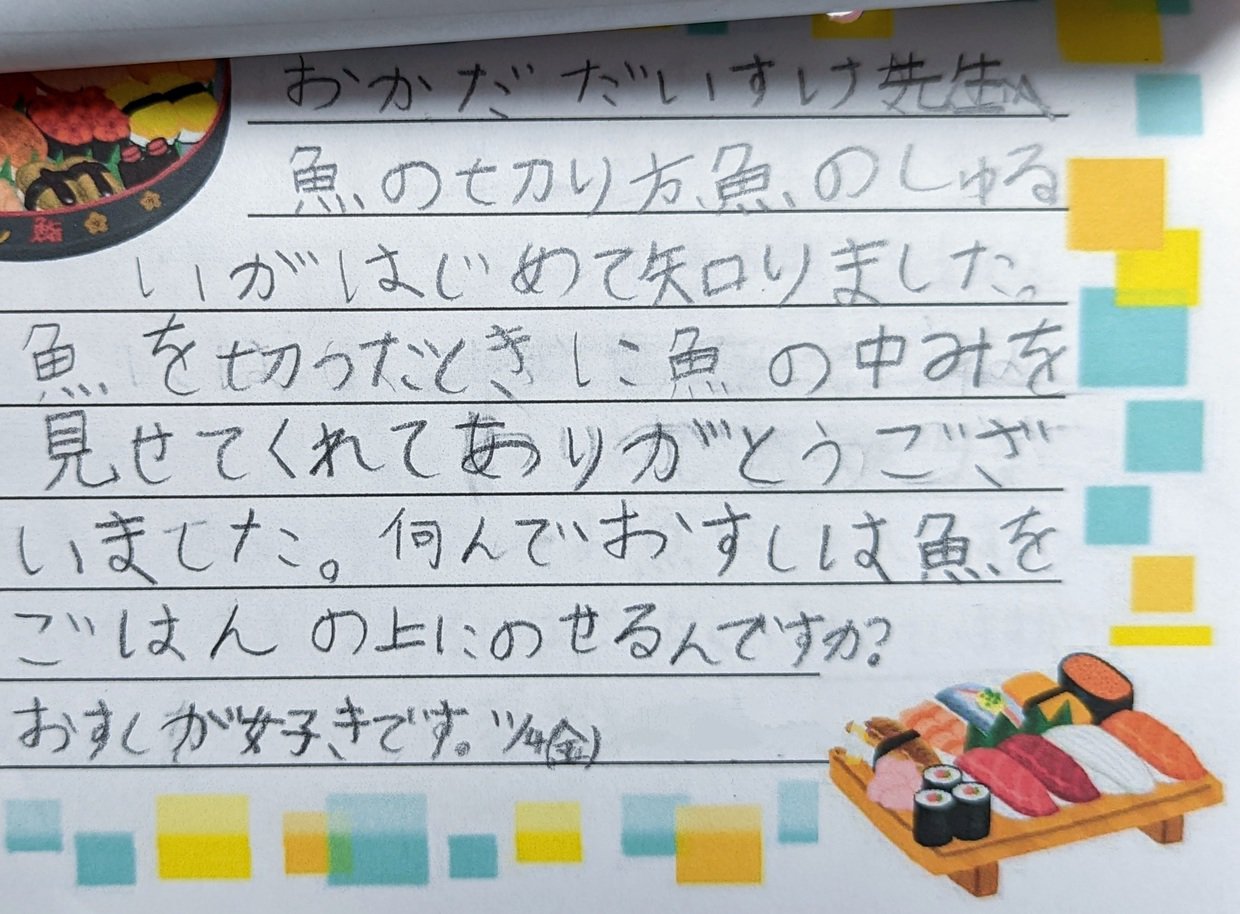 おかだ だいすけ先生へ
魚の切り方魚のしゅる
いがはじめて知りました。
魚を切っだときに魚の中みを
見せてくれてありがとうござ
いました。何んでおすしは魚を
ごはんの上にのせるんですか?
おすしが好きです。11/4(金)
鮨